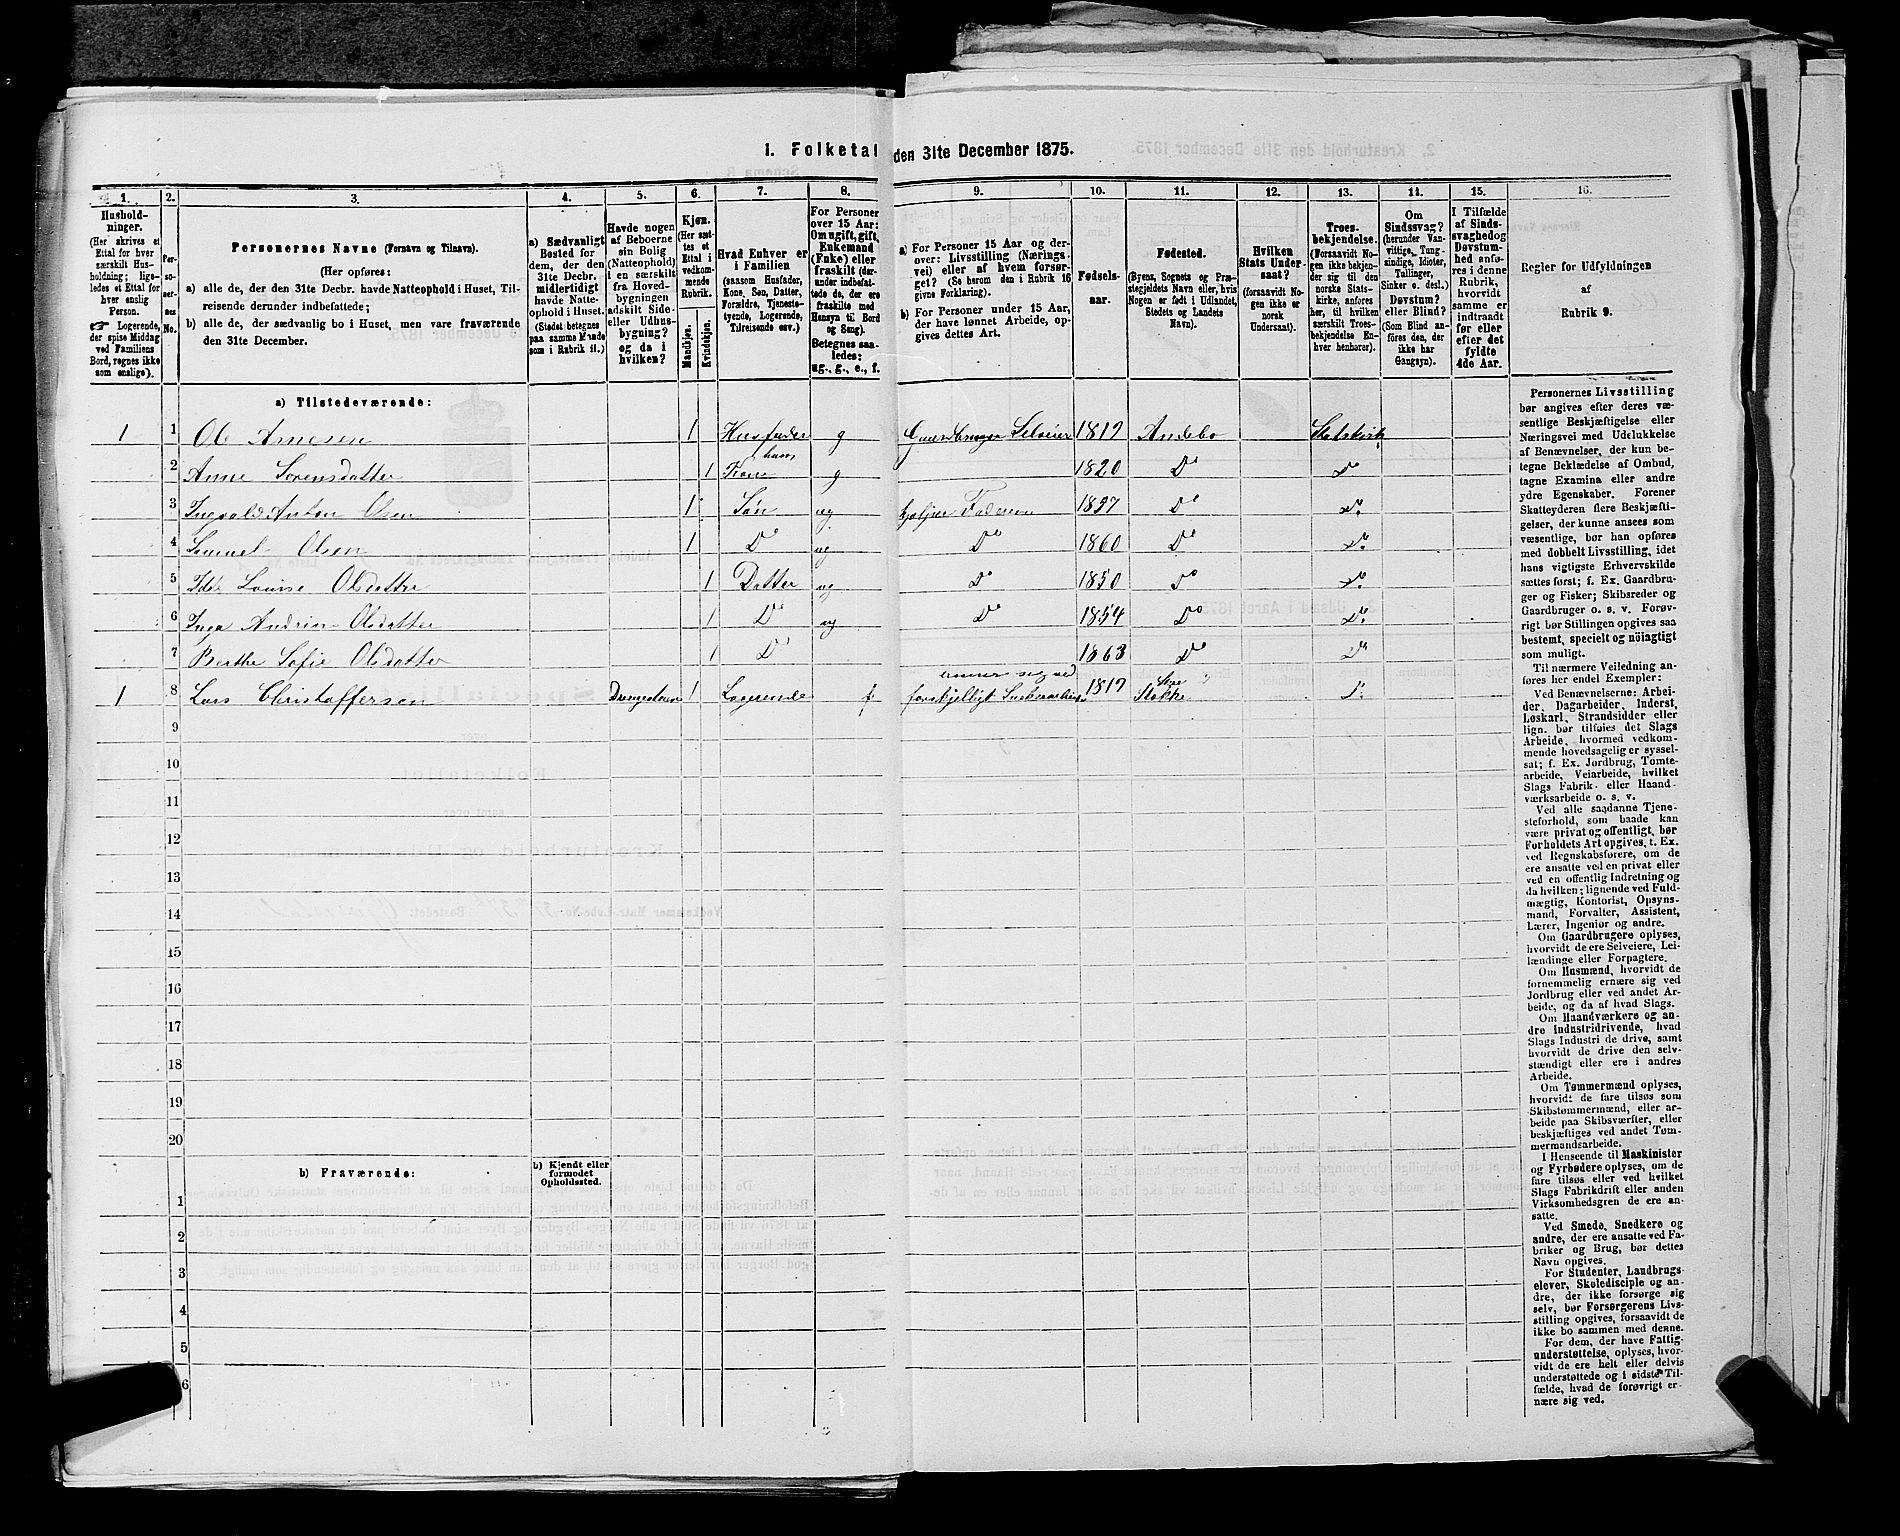 1. Folketal den 31te December 1875.
1. 2. 3. 4. 5. 6. 7. 8. 9. 10. 11. 12. 13. 14. 15. 16.
Hushold-
ninger.
(Her skrives et
Ettal for hver
særskilt Hus-
holdning; lige-
ledes et Ettal for
hver enslig
Person.
☞ Logerende,
der spise Middag
ved Familiens
Bord, regnes ikke
som enslige).
Per-
so-
ner-
nes
No.
Personernes Navne (Fornavn og Tilnavn).
(Her opføres:
a) alle de, der den 31te Decbr. havde Natteophold i Huset, Til-
reisende derunder indbefattede;
b) alle de, der sædvanlig bo i Huset, men vare fraværende
den 31te December.
a) Sædvanligt
Bosted for
dem, der den
31te Decbr.
midlertidigt
havde Natte-
ophold i Huset.
(Stedet betegnes
paa samme Maade
som i Rubrik 11.)
Havde nogen
af Beboerne
sin Bolig
(Natteophold)
i en særskilt
fra Hoved-
bygningen
adskilt Side-
eller Udhus-
bygning?
og da i
hvilken?
Kjøn.
(Her sæt-
tes et
Ettal i
vedkom-
mende
Rubrik.
Mandkjøn.
Kvindekjøn.
Hvad Enhver er
i Familien
(saasom Husfader,
Kone, Søn, Datter,
Forældre, Tjeneste-
tyende, Logerende,
Tilreisende osv.)
For Personer
over 15 Aar:
Om ugift, gift,
Enkemand
(Enke) eller
fraskilt (der-
under indbefat-
tede de, der ere
fraskilte med
Hensyn til Bord
og Seng).
Betegnes saa-
ledes:
ug., g., e., f.
a) For Personer 15 Aar og der-
over: Livsstilling (Nærings-
vei) eller af hvem forsør-
get? (Se herom den i Rubrik 16
givne Forklaring).
b) For Personer under 15 Aar,
der have lønnet Arbeide, op-
gives dettes Art.
Fødsels-
aar.
Fødested.
(Byens, Sognets og Præ-
stegjeldets Navn eller, hvis
Nogen er født i Udlandet,
Stedets og Landets
Navn).
Hvilken
Stats Under-
saat?
(forsaavidt No-
gen ikke er
norsk
Undersaat).
Troes-
bekjendelse.
(Forsaavidt No-
gen ikke bekjen-
der sig til den
norske Stats-
kirke, anføres
her, til hvilken
særskilt Troes-
bekjendelse En-
hver henhører).
Om
Sindssvag?
(herunder Van-
vittige, Tung-
sindige, Idioter,
Tullinger,
Sinker o. desl.)
Døvstum?
eller Blind?
(Som Blind an-
føres den, der
ikke har
Gangsyn).
I Tilfælde
af Sinds-
svaghed og
Døvstum-
hed anfø-
res i denne
Rubrik,
hvorvidt
samme er
indtraadt
før eller
efter det
fyldte
4de Aar.
Regler for Udfyldningen
af
Rubrik 9.
a) Tilstedeværende:
1 1 Ole Arnesen 1 Husfader g Gaardbruger Selveier 1819 Andebo Statskirk
2 Anne Sørensdatter 1 hans Kone g 1820 Do Do
3 Ingvald Anton Olsen 1 Søn ug hjelper Faderen 1857 Do Do
4 Samuel Olsen 1 Do ug Do 1860 Do Do
5 Louise Olsdatter 1 Datter ug Do 1850 Do Do
6 Inga Andrin Olsdatter 1 Do ug Do 1854 Do Do
7 Berthe Sofie Olsdatter 1 Do 1863 Do Do
1 8 Lars Christoffersen 1 Logerende f ernærer sig ved forskjelligt 1819 Stokke Do
9
10
11
12
13
14
15
16
17
18
19
20
b) Fraværende:
b) Kjendt eller
formodet
Opholdssted.
1
2
3
4
5
6
Personernes Livsstilling
bør angives efter deres væ-
sentlige Beskjæftigelse eller
Næringsvei med Udelukkelse
af Benævnelser, der kun be-
tegne Beklædelse af Ombud,
tagne Examina eller andre
ydre Egenskaber. Forener
Skatteyderen flere Beskjæfti-
gelser, der kunne ansees som
væsentlige, bør han opføres
med dobbelt Livsstilling, idet
hans vigtigste Erhvervskilde
sættes først; f. Ex. Gaardbru-
ger og Fisker; Skibsreder og
Gaardbruger o. s. v. Forøv-
rigt bør Stillingen opgives saa
bestemt, specielt og nöiagtigt
som muligt.
Til nærmere Veiledning an-
føres her endel Exempler:
Ved Benævnelserne: Arbei-
der, Dagarbeider, Inderst,
Løskarl, Strandsidder eller
lign. bør tilføies det Slags
Arbeide, hvormed vedkom-
mende hovedsagelig er syssel-
sat; f. Ex. Jordbrug, Tomte-
arbeide, Veiarbeide, hvilket
Slags Fabrik- eller Haand-
værksarbeide o. s. v.
Ved alle saadanne Tjene-
steforhold, som baade kan
være privat og offentligt, bør
Forholdets Art opgives, t. Ex.
ved Regnskabsførere, om de
ere ansatte ved en privat eller
ved en offentlig Indretning og
da hvilken; lignende ved Fuld-
mægtig, Kontorist, Opsyns-
mand, Forvalter, Assistent,
Lærer, Ingeniør og andre.
Om Gaardbrugere oplyses,
hvorvidt de ere Selveiere, Lei-
lændinge eller Forpagtere.
Om Husmænd, hvorvidt de
fornemmelig ernære sig ved
Jordbrug eller ved andet Ar-
beide, og da af hvad Slags.
Om Haandværkere og an-
dre Industridrivende, hvad
Slags Industri de drive, samt
hvorvidt de drive den selv-
stændigt eller ere i andres
Arbeide.
Om Tømmermænd oplyses,
hvorvidt de fare tilsøs som
Skibstømmermænd, eller ar-
beide paa Skibsværfter, eller
beskjæftiges ved andet Tøm-
mermandsarbeide.
I Henseende til Maskinister
og Fyrbødere oplyses, om de
fare tilsøs eller ved hvilket
Slags Fabrikdrift eller anden
Virksomhedsgren de ere an-
satte.
Ved Smede, Snedkere og
andre, der ere ansatte ved Fa-
briker og Brug, bør dettes
Navn opgives.
For Studenter, Landbrugs-
elever, Skoledisciple og an-
dre, der ikke forsørge sig
selv, bør Forsørgerens Livs-
stilling opgives, forsaavidt de
ikke bo sammen med denne.
For dem, der have Fattig-
understøttelse, oplyses, hvor-
vidt de ere helt eller delvis
understøttede og i sidste Til-
fælde, hvad de forøvrigt er-
nære sig ved.